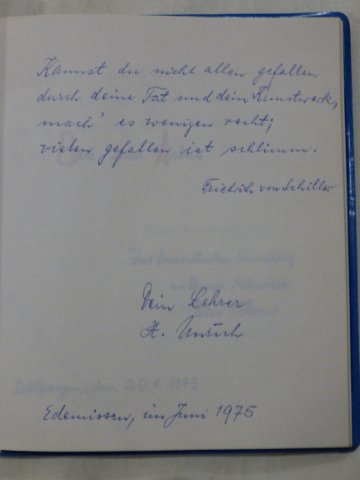 Kannst du nicht allen gefallen
durch deine Tat und dein Kunstwerk,
mach' es wenigen recht;
vielen gefallen ist schlimm.
Friedrich von Schiller
Dein Lehrer
H.
den 20.1.1975
Edemissen, im Juni 1975